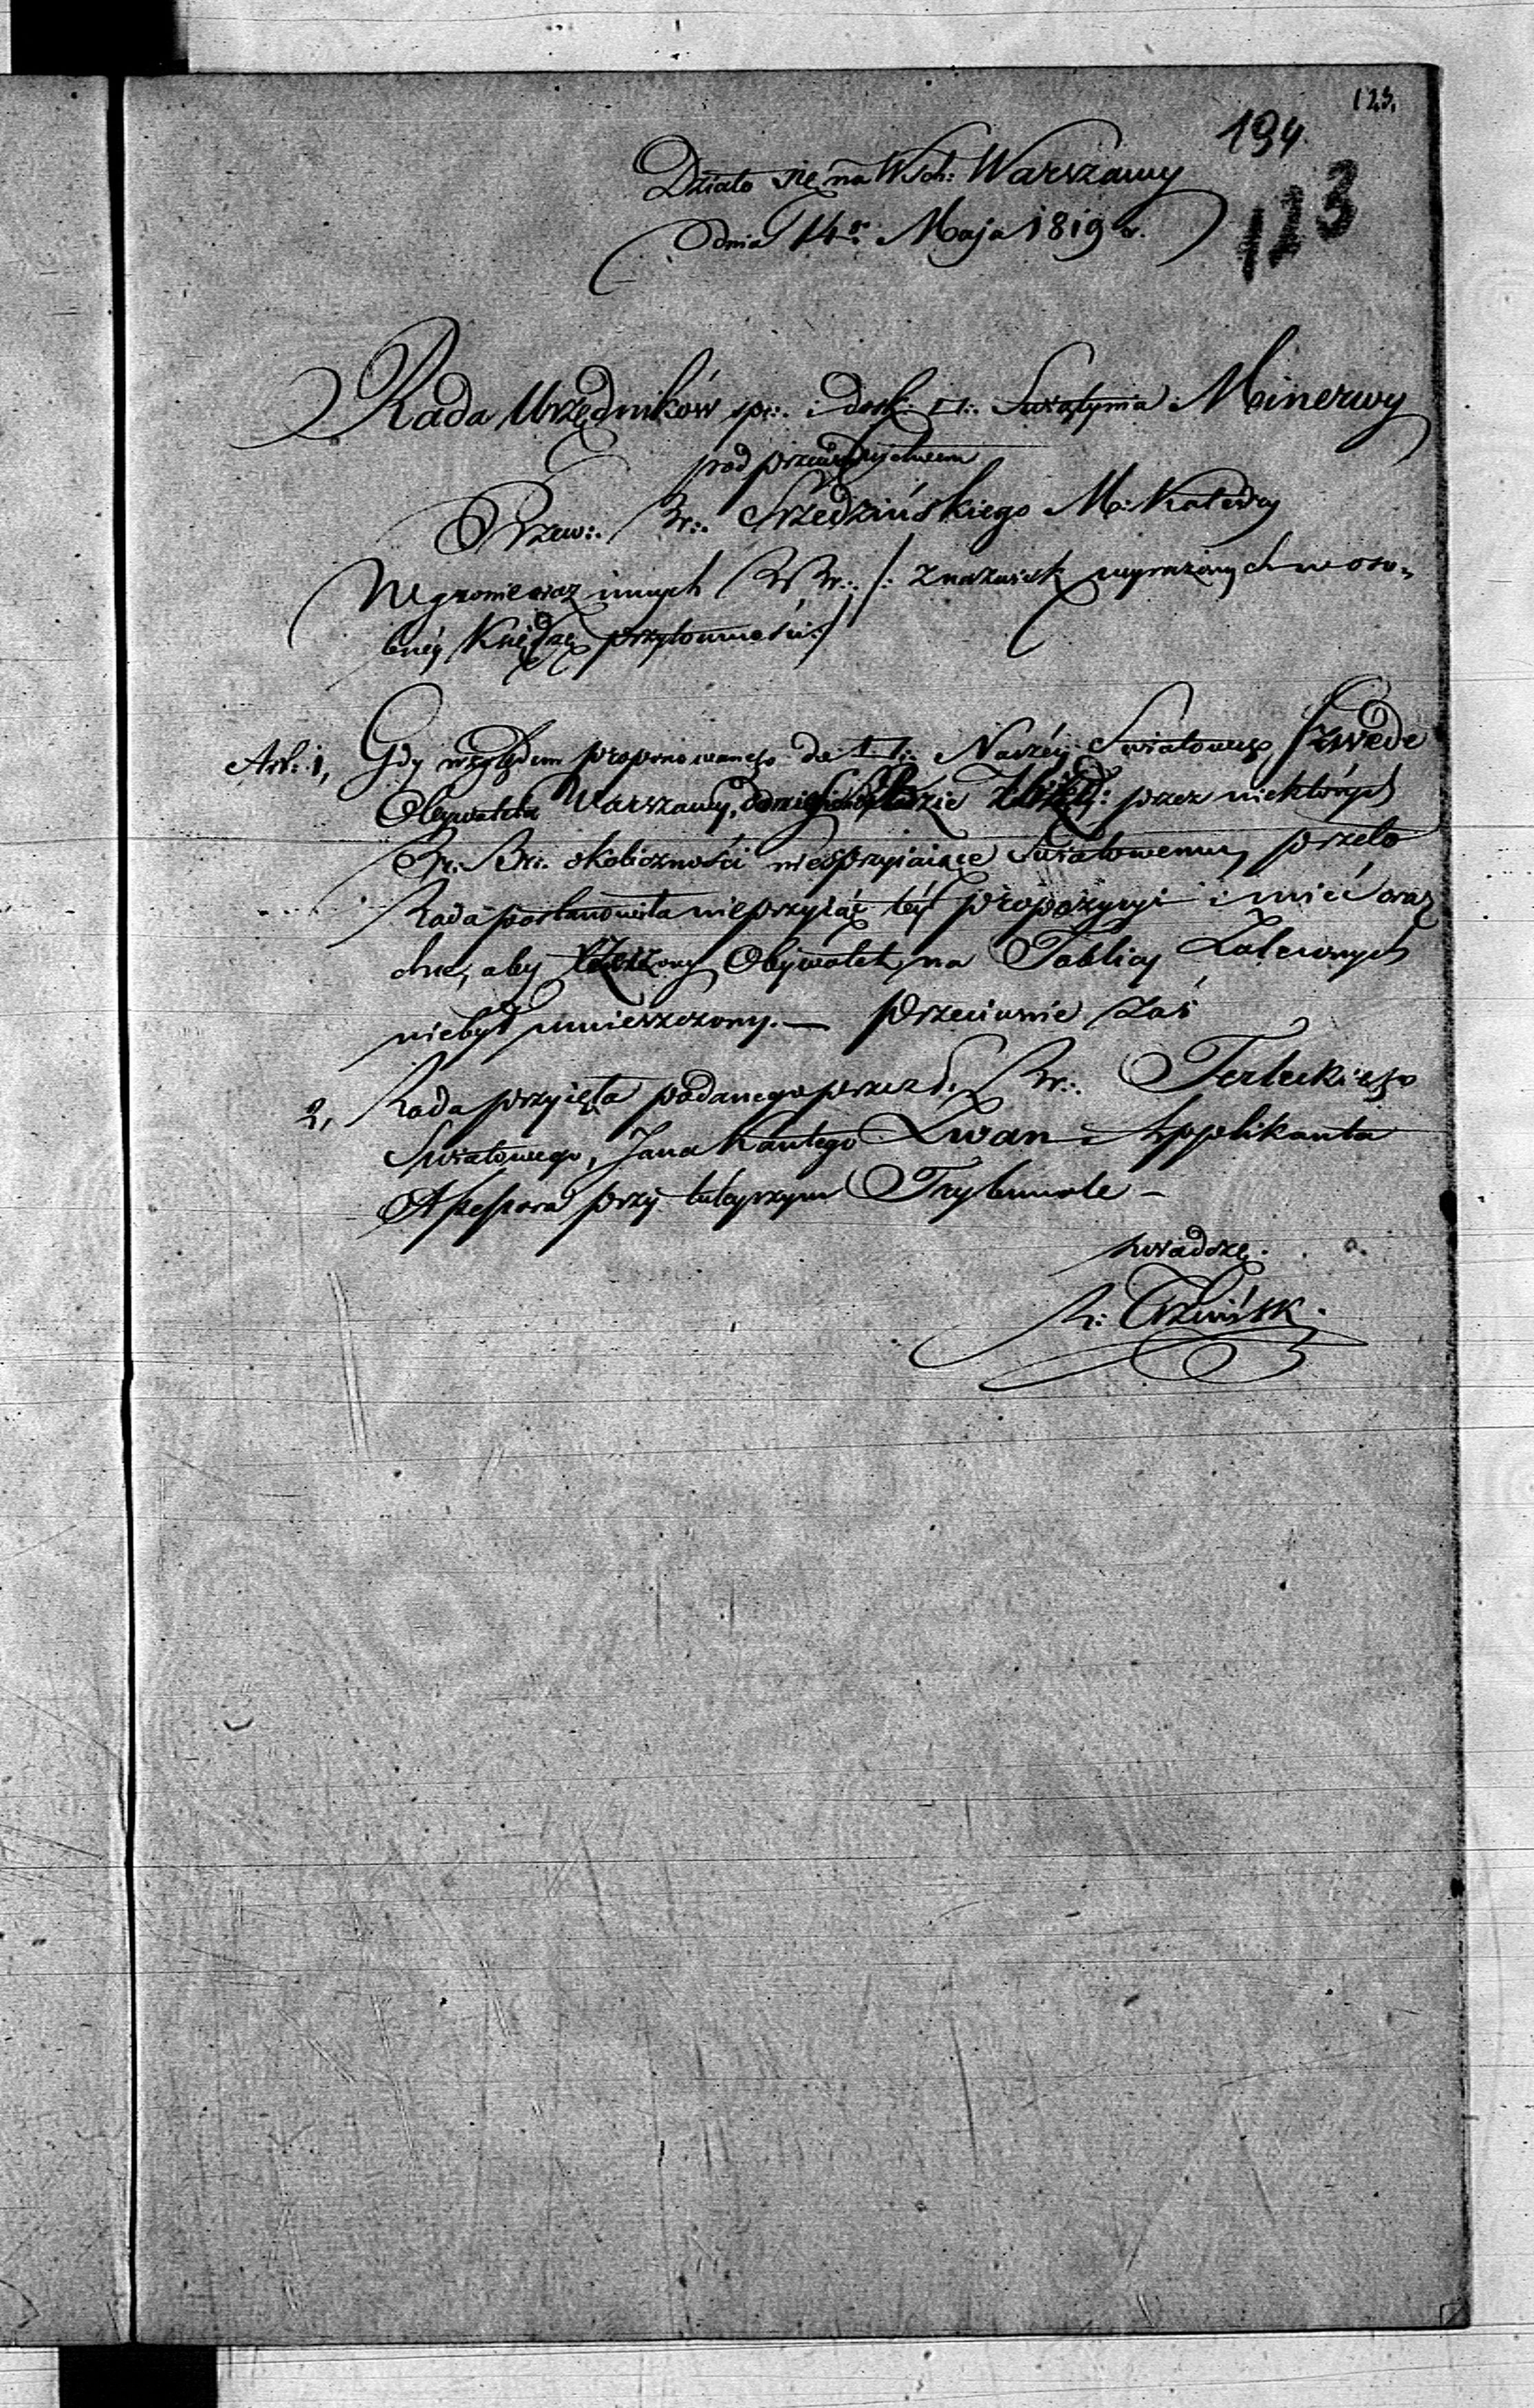 123.
194.
113
Działo się na Wsch: Warszawy
dnia 14go Maja 1819 r.
Rada Urzędników spr:. i dosk: □:. Świątynia Minerwy
pod przewodnictwem
Przew:. Br:. Srzedzińskiego M: Katedry
W gronie oraz innych BrBr:. /: z nazwisk wyrażonych w oso=
bnéy Księdze przytomności :/
Art: 1, Gdy względem proponowanego do □:. Naszéy Swiatowego Szwéde
Obywatela Warszawy, Radzie przez niektórych
Br: Br:. okoliczności niesprzyiaiące Swiatowemu, przeto
Rada postanowiła nieprzyiąć téy propozycyi i mieć oraz
chce, aby rzeczony Obywatel, na Tablicy Zalewnych
niebył umieszczony. — Przeciwnie zaś
2, Rada przyięła podanego przez S. Br:. Terleckiego
Swiatowego, Jana Kantego Zwan Applikanta
Assessora przy tuteyszym Trybunale —
Swiadczę.